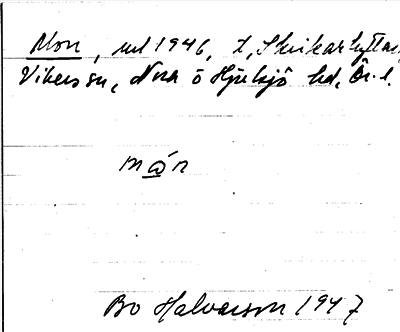 Mon, utl 1946, t, Skrikarhyttan,
Vikers sn, Nora o Hjulsjö hd, Ör. l.
món
Bo Halvarson 1947